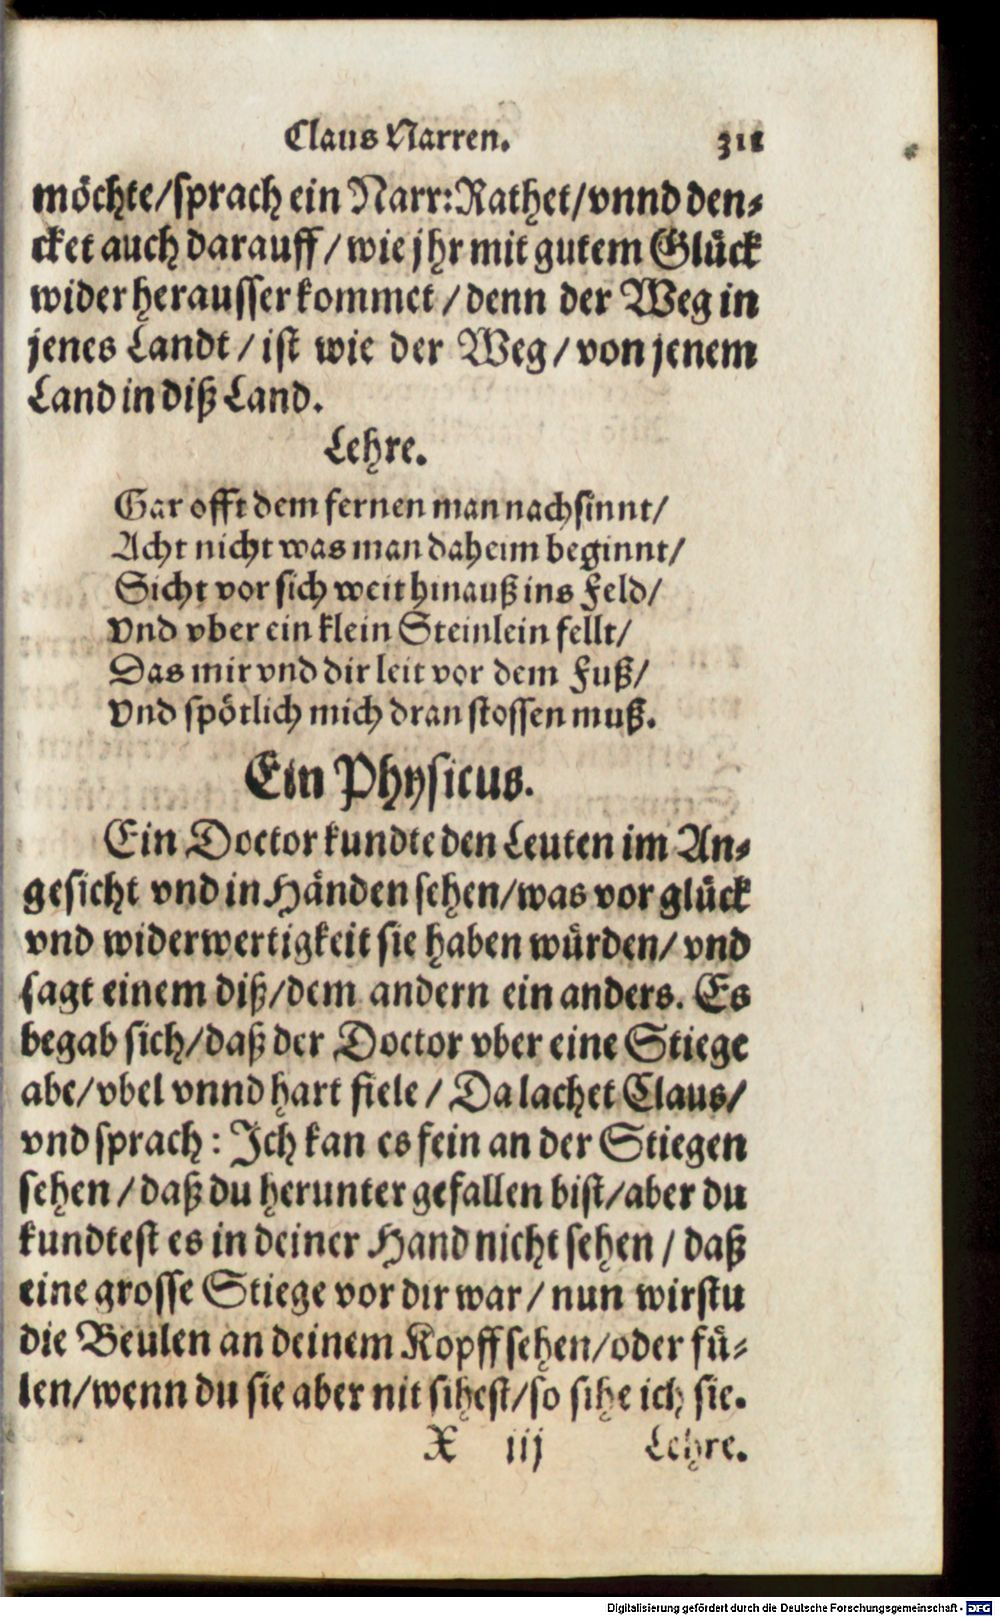 Claus Narren. 311
möchte/sprach ein Narr: Rathet/vnnd den-
cket auch darauff/wie jhr mit gutem Glück
wider herausser kommet/denn der Weg in
jenes Landt/ist wie der Weg/von jenem
Land in diß Land.
Lehre.
Gar offt dem fernen man nachsinnt/
Acht nicht was man daheim beginnt/
Sicht vor sich weit hinauß ins Feld/
Vnd vber ein klein Steinlein fellt/
Das mir vnd dir leit vor dem Fuß/
Vnd spötlich mich dran stossen muß.
Ein Physicus.
Ein Doctor kundte den Leuten im An-
gesicht vnd in Händen sehen/was vor glück
vnd widerwertigkeit sie haben würden/vnd
sagt einem diß/dem andern ein anders. Es
begab sich/daß der Doctor vber eine Stiege
abe/vbel vnnd hart fiele/Da lachet Claus/
vnd sprach: Ich kan es fein an der Stiegen
sehen/daß du herunter gefallen bist/aber du
kundtest es in deiner Hand nicht sehen/daß
eine grosse Stiege vor dir war/nun wirstu
die Beulen an deinem Kopff sehen/oder fü-
len/wenn du sie aber nit sihest/so sihe ich sie.
X iij Lehre.
Digitalisierung gefördert durch die Deutsche Forschungsgemeinschaft - DFG